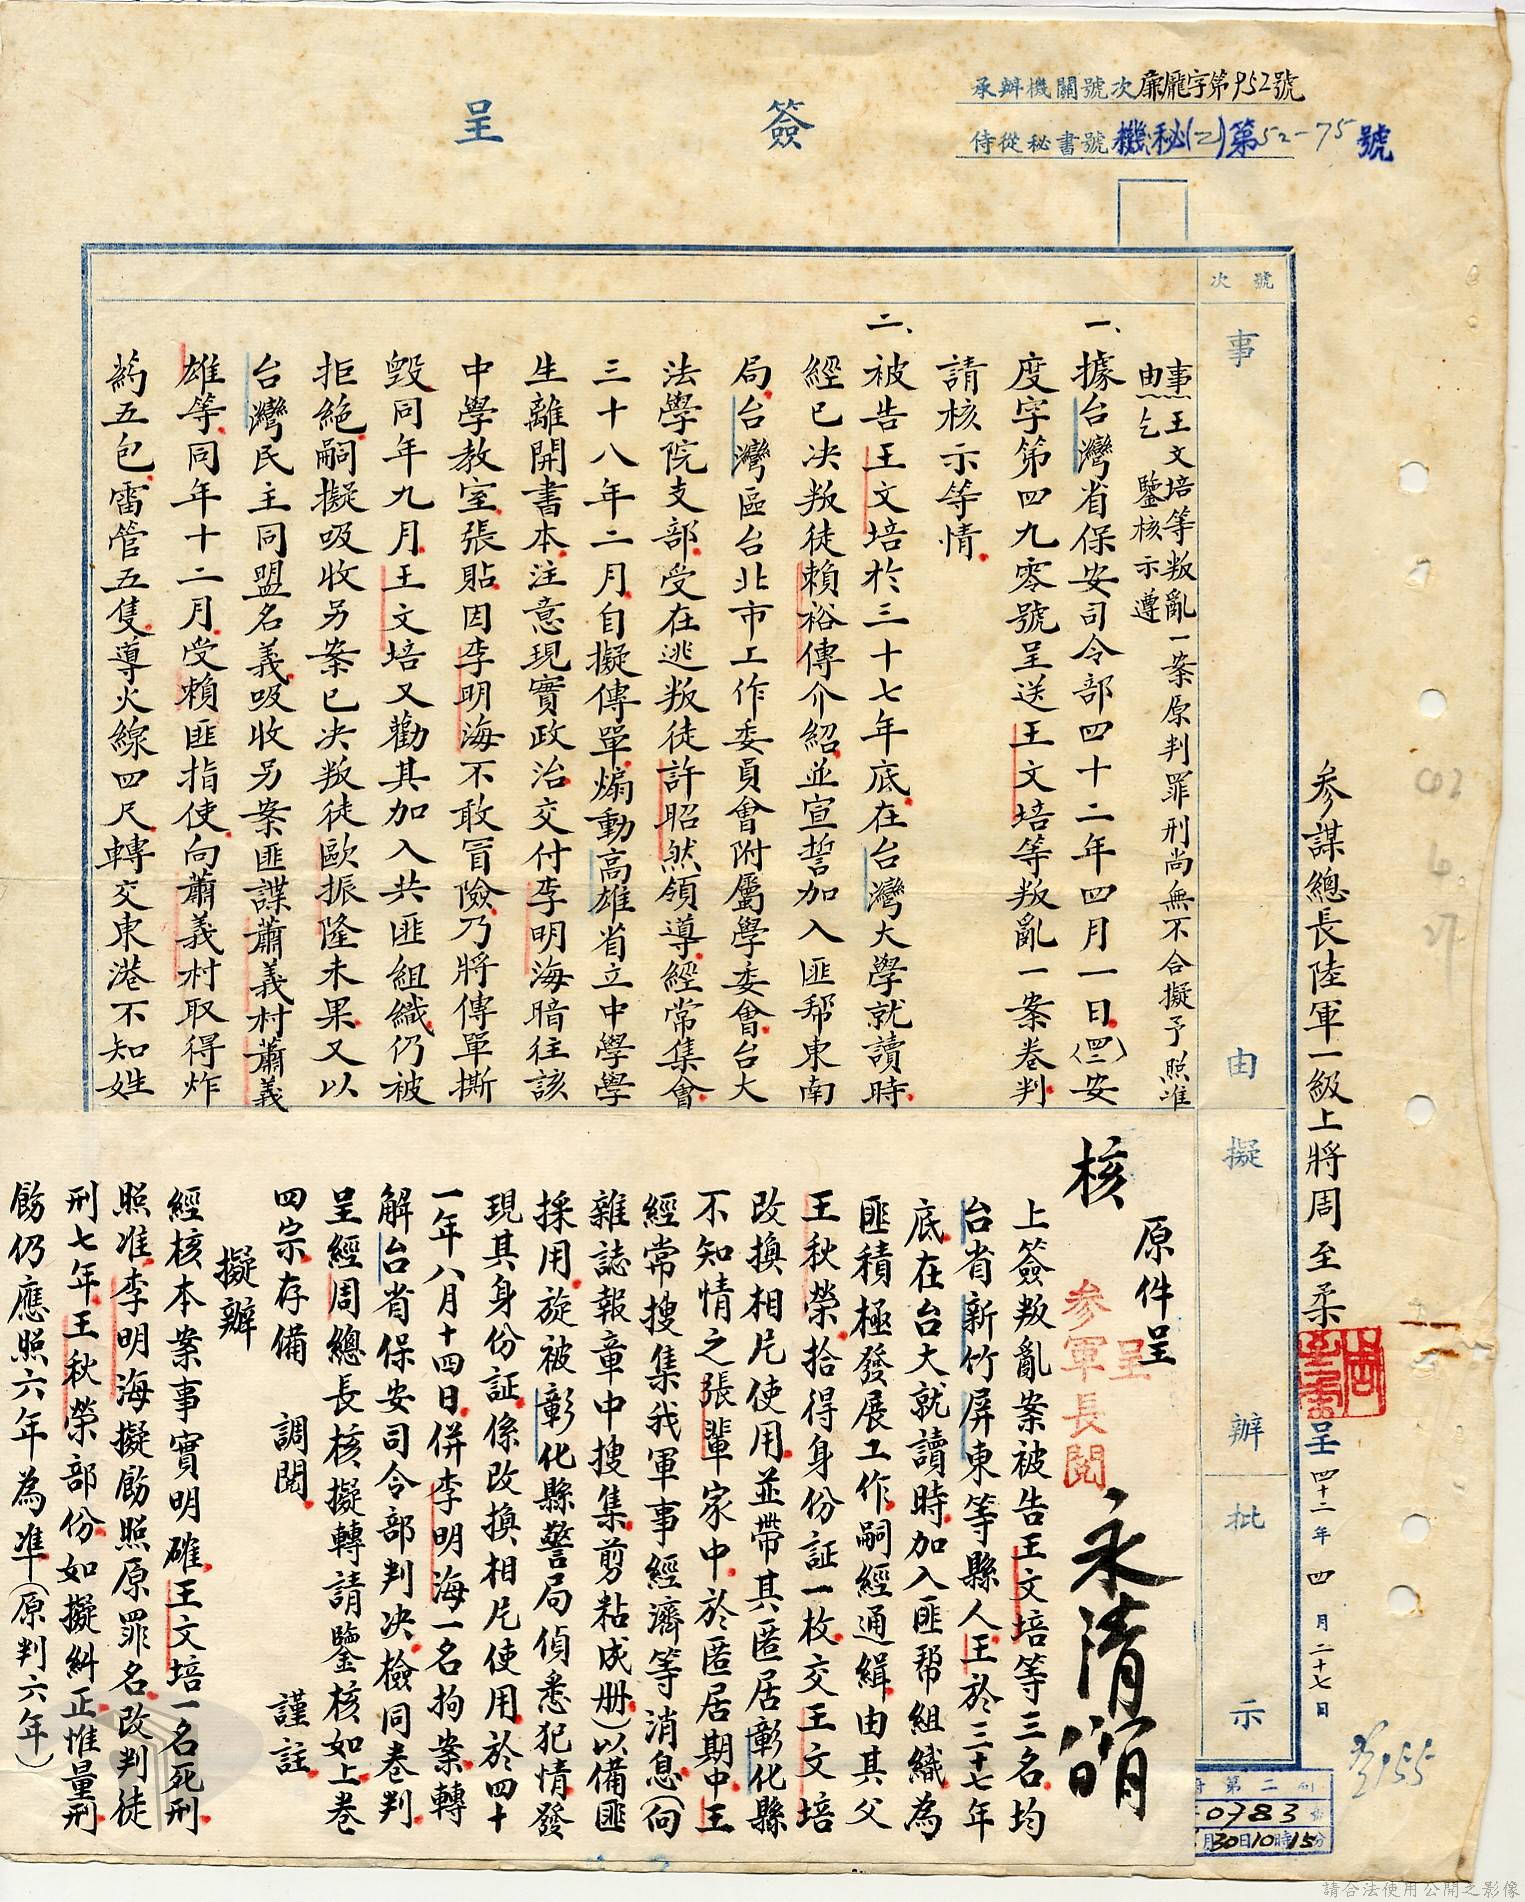 簽呈
承辦機關號次廉龐字第952號
侍從秘書號機秘(乙)第52-75號
號次
事由擬辦批示
參謀總長陸軍一級上將周至柔呈四十二年四月二十七日
事由:為王文培等叛亂一案原判罪刑尚無不合擬予照准
乞鑒核示遵
一、據台灣省保安司令部四十二年四月一日(四二)安
度字第四九零號呈送王文培等叛亂一案卷判
請核示等情
二、被告王文培於三十七年底在台灣大學就讀時
經已決叛徒賴裕傳介紹並宣誓加入匪幫東南
局台灣區台北市工作委員會附屬學委會台大
法學院支部受在逃叛徒許昭然領導經常集會
三十八年二月自擬傳單煽動高雄省立中學學
生離開書本注意現實政治交付李明海暗往該
中學教室張貼因李明海不敢冒險乃將傳單撕
毀同年九月王文培又勸其加入共匪組織仍被
拒絕嗣擬吸收另案已決叛徒歐振隆未果又以
台灣民主同盟名義吸收另案匪諜蕭義村蕭義
雄等同年十二月受賴匪指使向蕭義村取得炸
葯五包雷管五隻導火線四尺轉交東港不知姓
核
原件呈
呈
參軍長閱
上簽叛亂案被告王文培等三名均
台省新竹屏東等縣人王於三十七年
底在台大就讀時加入匪幫組織為
匪積極發展工作嗣經通緝由其父
王秋榮拾得身份証一枚交王文培
改換相片使用並帶其匿居彰化縣
不知情之張輩家中於匿居期中王
經常搜集我軍事經濟等消息(向
雜誌報章中搜集剪粘成册)以備匪
採用旋被彰化縣警局偵悉犯情發
現其身份証係改換相片使用於四十
一年八月十四日併李明海一名拘案轉
解台省保安司令部判決檢同卷判
呈經周總長核擬轉請鑒核如上卷
四宗存備調閱 謹註
擬辦
經核本案事實明確王文培一名死刑
照准李明海擬飭照原罪名改判徒
刑七年王秋榮部份如擬糾正惟量刑
飭仍應照六年為準(原判六年)
0783
月30日10時15分
請合法使用公開之影像